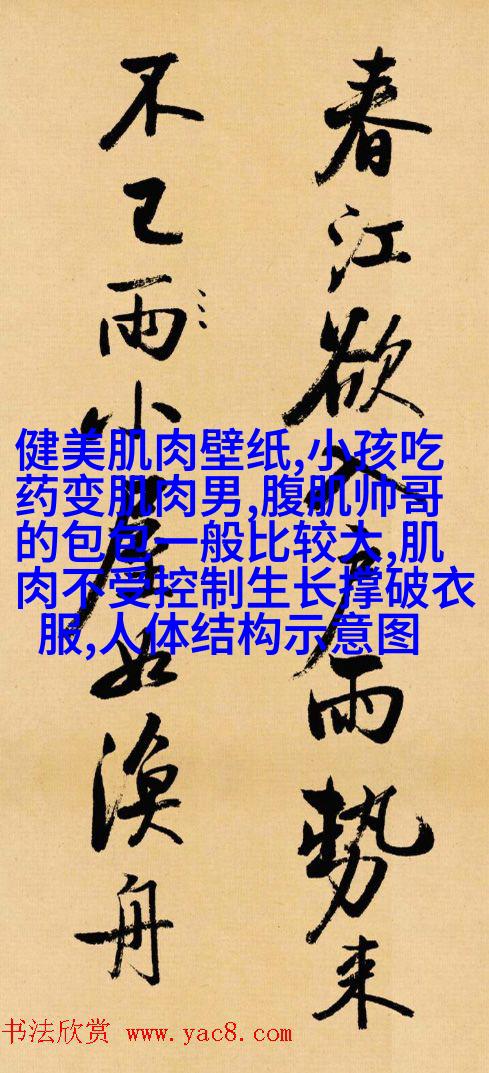 春江欲入户雨势来
不已雨小屋如渔舟
健美肌肉壁纸,小孩吃
药变肌肉男,腹肌帅哥
的包包一般比较大,肌
肉不受控制生长撑破衣
服,人体结构示意图
书法欣赏 www.yac8.com